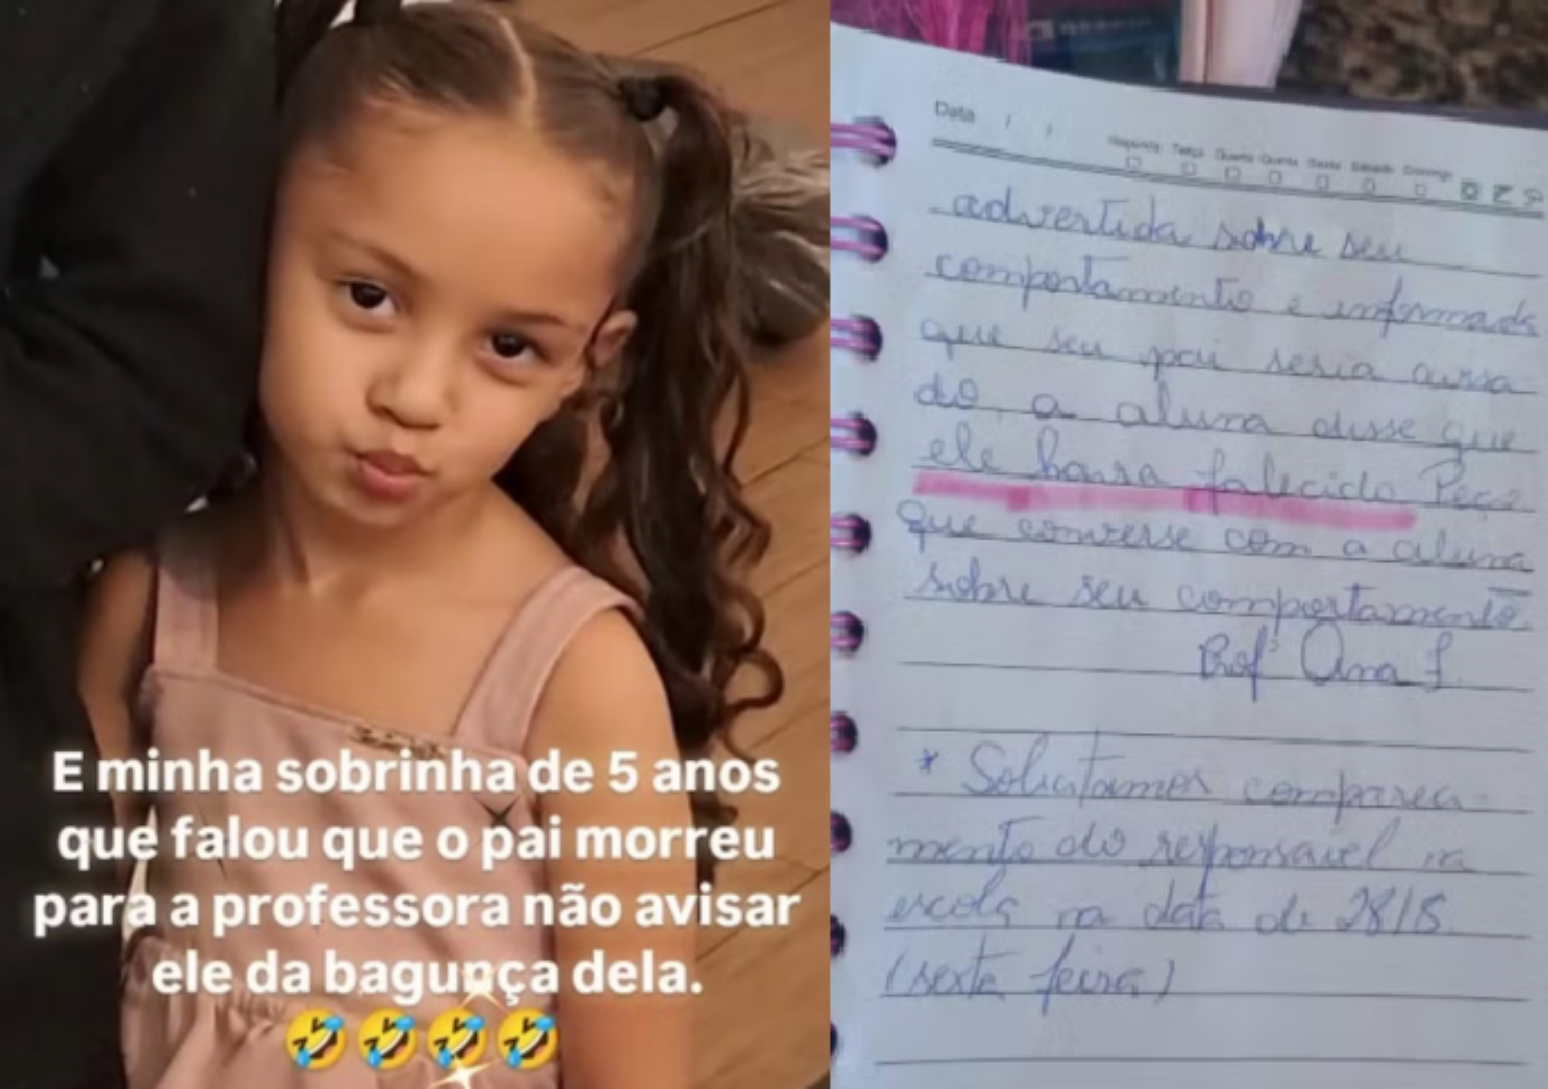 E minha sobrinha de 5 anos
que falou que o pai morreu
para a professora não avisar
ele da bagunça dela.
🤣🤣🤣🤣
Data / /
Segunda Terça Quarta Quinta Sexta Sábado Domingo
advertida sobre seu
comportamento e informada
que seu pai seria avisa
do, a aluna disse que
ele havia falecido Peço
que converse com a aluna
sobre seu comportamento.
Profª Ana
* Solicitamos compareci-
mento do responsavel na
escola na data de 28/8
(sexta feira)